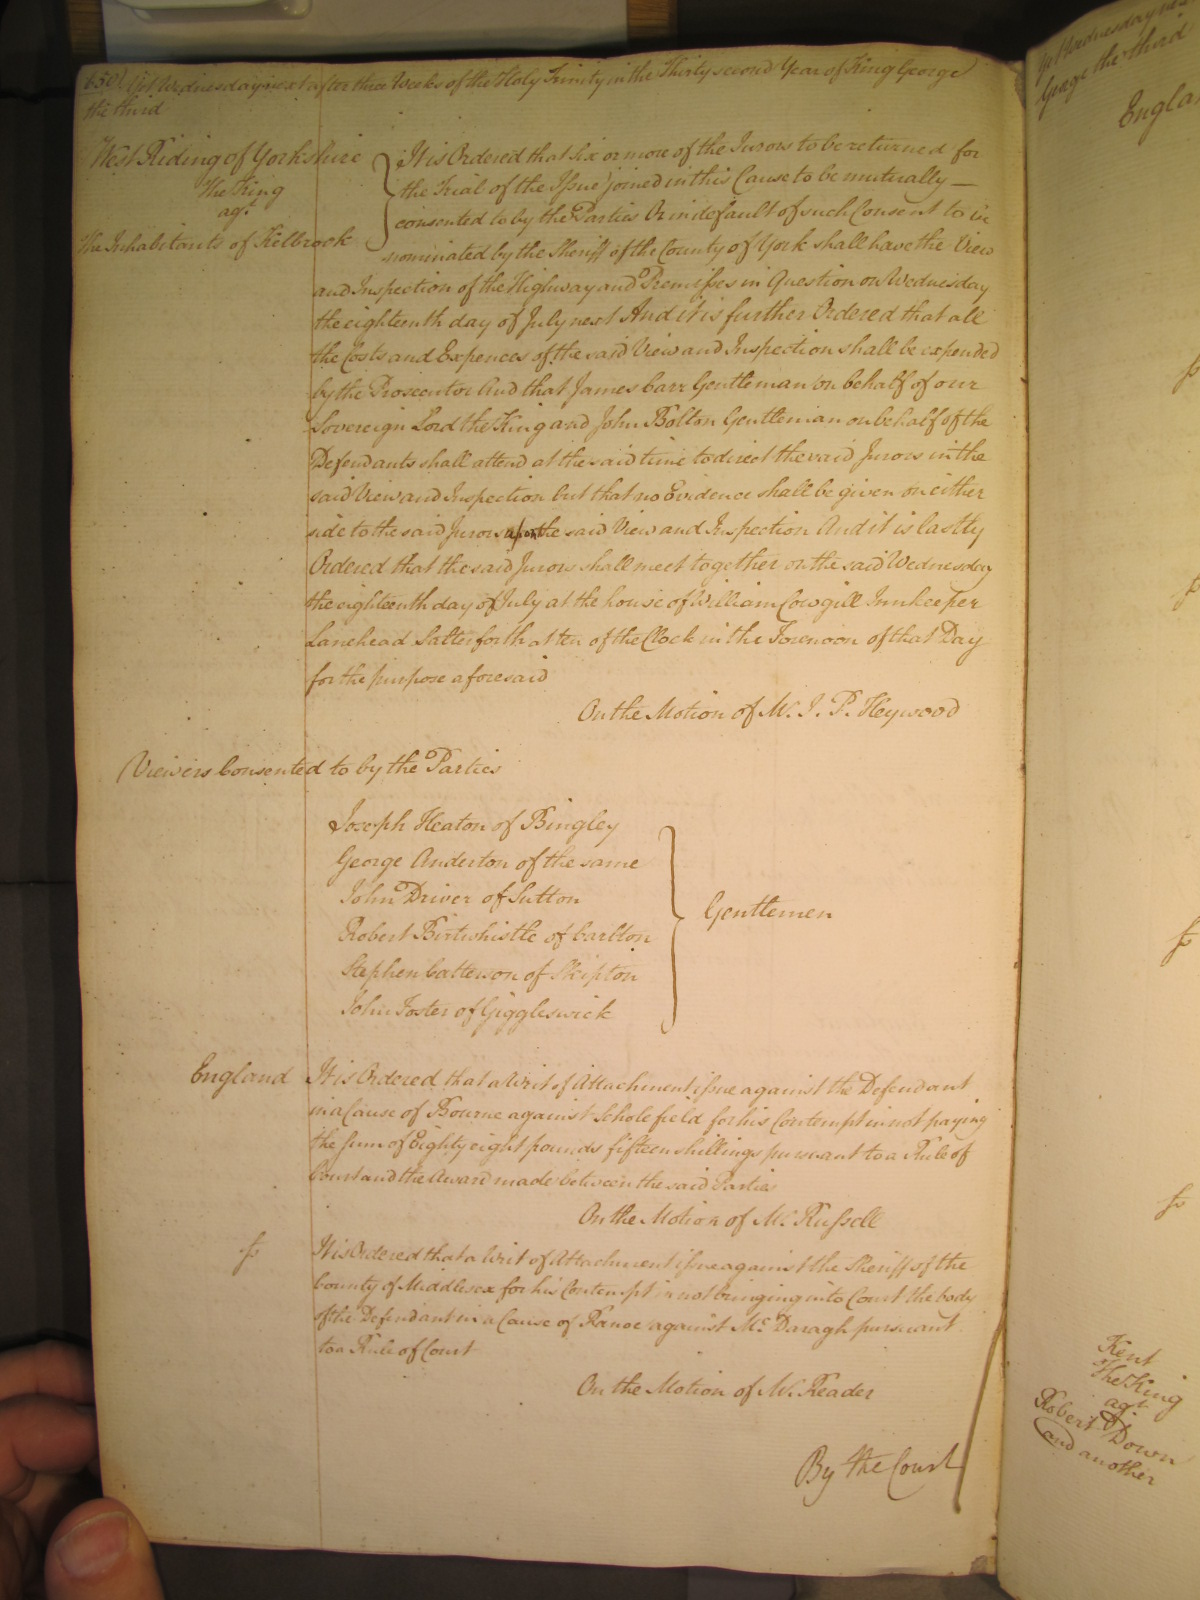 (650) Upt Wednesday next after three Weeks of the Holy Trinity in the Thirty second Year of King George
the third
West Riding of Yorkshire
The King
agt
The Inhabitants of Kelbrook
It is Ordered that six or more of the Jurors to be returned for
the Trial of the Issue joined in this Cause to be mutually —
consented to by the Parties Or in default of such Consent to be
nominated by the Sheriff of the County of York shall have the View
and Inspection of the Highway and Premisses in Question on Wednesday
the eighteenth day of July next And it is further Ordered that all
the Costs and Expences of the said View and Inspection shall be expended
by the Prosecutor And that James Carr Gentleman on behalf of our
Sovereign Lord the King and John Bolton Gentleman on behalf of the
Defendants shall attend at the said time to direct the said Jurors in the
said View and Inspection but that no Evidence shall be given on either
side to the said Jurors upon the said View and Inspection And it is lastly
Ordered that the said Jurors shall meet together on the said Wednesday
the eighteenth day of July at the house of William Cowgill Innkeeper
Lanehead Salterforth at ten of the Clock in the Forenoon of that Day
for the purpose aforesaid
On the Motion of Mr. J. P. Heywood
Viewers Consented to by the Parties
Joseph Heaton of Bingley
George Anderton of the same
John Driver of Sutton
Robert Birtwhistle of Carlton
Stephen Catterson of Skipton
John Foster of Giggleswick
Gentlemen
England It is Ordered that a Writ of Attachment issue against the Defendant
in a Cause of Bourne against Scholefield for his Contempt in not paying
the Sum of Eighty eight pounds fifteen shillings pursuant to a Rule of
Court and the Award made between the said Parties
On the Motion of Mr. Russell
fs It is Ordered that a Writ of Attachment issue against the Sheriff of the
County of Middlesex for his Contempt in not bringing into Court the body
of the Defendant in a Cause of Kanoe against Mc Daragh pursuant
to a Rule of Court
On the Motion of Mr. Reader
By the Court
Upt Wednesday next
George the third
England
Kent
The King
agt
Robert Down
and another